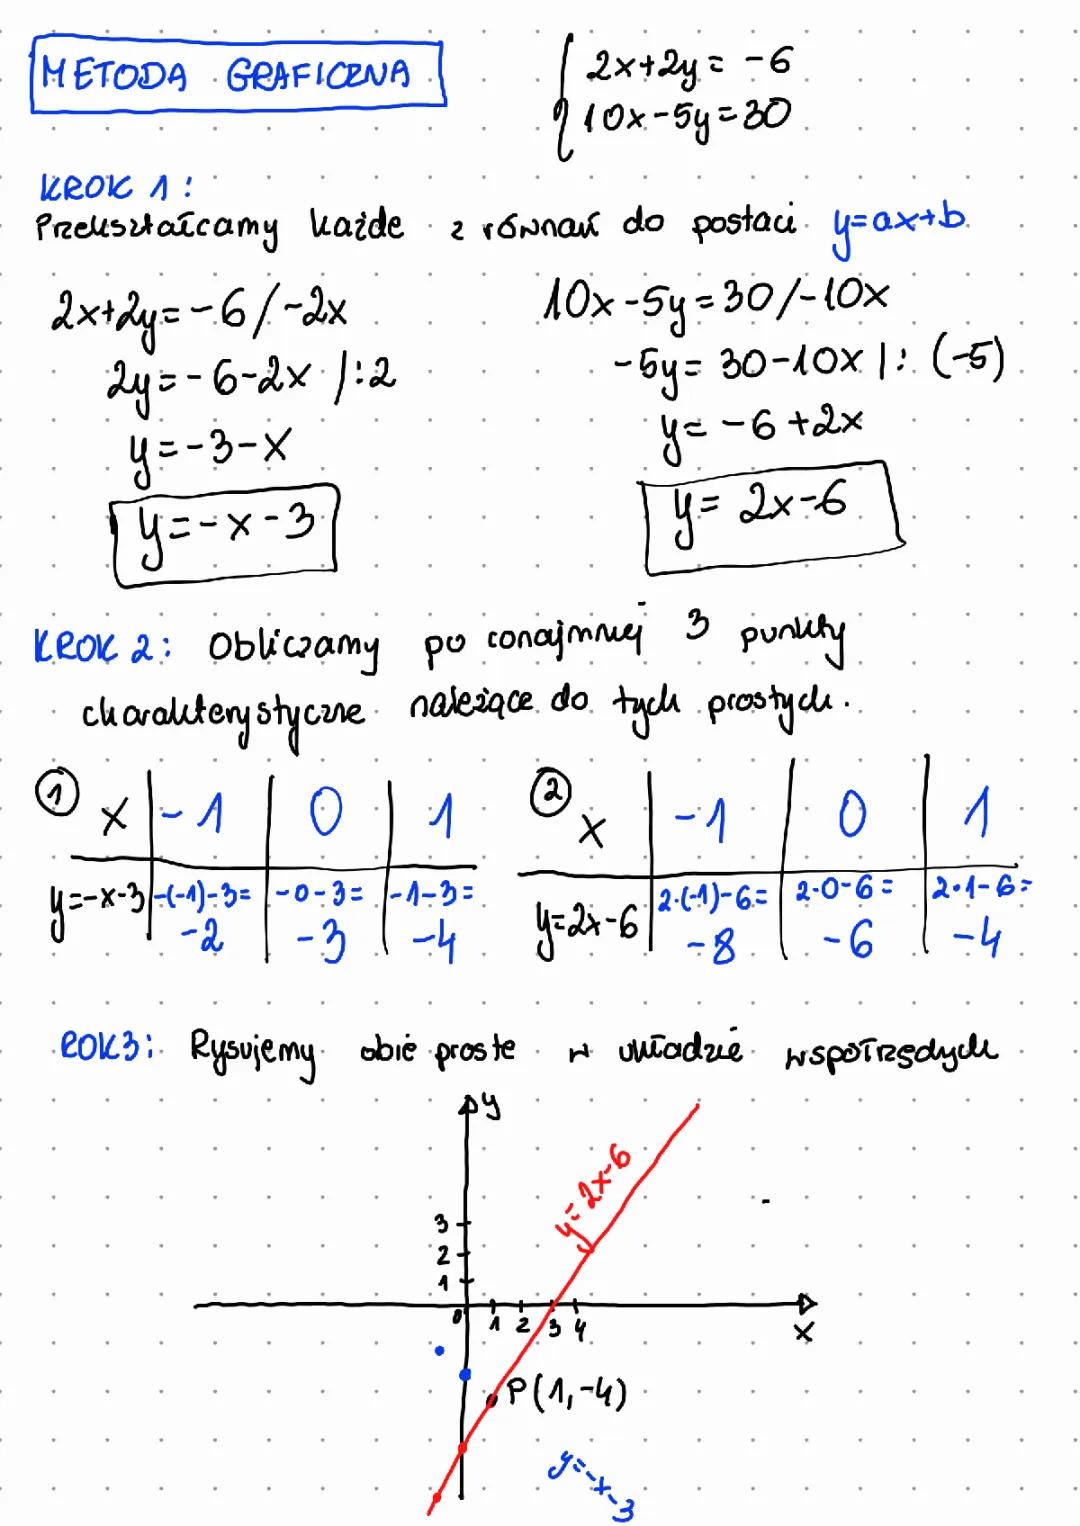 METODA GRAFICZNA
2x+2y=-6
10x-5y=30
KROK 1:
Przekształcamy każde z równań do postaci y=ax+b
2x+2y=-6/-2x
2y=-6-2x /:2
y=-3-x
y=-x-3
10x-5y=30/-10x
-5y=30-10x |:(-5)
y=-6+2x
y=2x-6
KROK 2: Obliczamy po conajmniej 3 punkty
charakterystyczne należące do tych prostych.
1 x -1 0 1
y=-x-3 -(-1)-3= -0-3= -1-3=
-2 -3 -4
2 x -1 0 1
y=2x-6 2·(-1)-6= 2·0-6= 2·1-6=
-8 -6 -4
ROK3: Rysujemy obie proste w układzie współrzędych
y
y=2x-6
3
2
1
0 1 2 3 4
x
P(1,-4)
y=-x-3